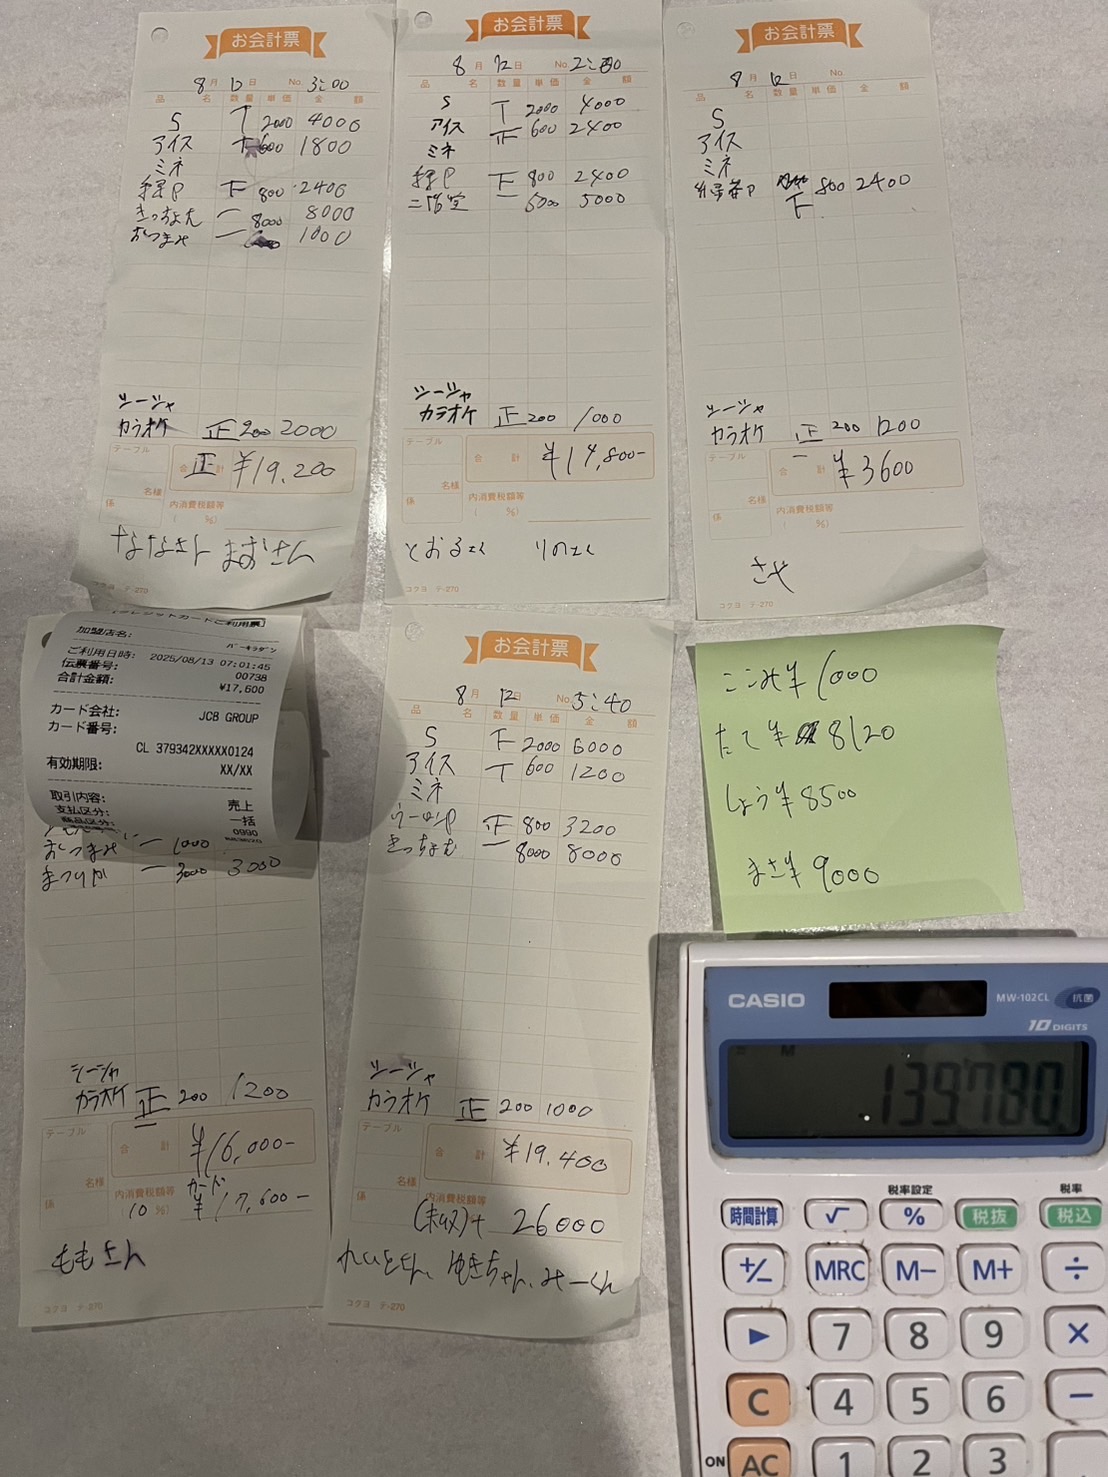 お会計票
8月12日 No. 3:00
品名 数量 単価 金額
S T 2000 4000
アイス 下 600 1800
ミネ
緑P 下 800 2400
きっちょむ 一 8000 8000
おつまみ 一 1000
シーシャ
カラオケ 正 200 2000
テーブル
合計 正 ¥19,200
名様
係
内消費税額等
( %)
ななさん まおさん
コクヨ テ-270
お会計票
8月12日 No. 2:00
品名 数量 単価 金額
S T 2000 4000
アイス 正 600 2400
ミネ
緑P 下 800 2400
二階堂 一 5000 5000
シーシャ
カラオケ 正 200 1000
テーブル
合計 ¥14,800-
名様
係
内消費税額等
( %)
とおるさん りのさん
コクヨ テ-270
お会計票
8月12日 No.
品名 数量 単価 金額
S
アイス
ミネ
緑茶P 下 800 2400
シーシャ
カラオケ 正一 200 1200
テーブル
合計 ¥3600
名様
係
内消費税額等
( %)
さや
コクヨ テ-270
[クレジットカードご利用票]
加盟店名:
バーキラダン
ご利用日時: 2025/08/13 07:01:45
伝票番号: 00738
合計金額: ¥17,600
カード会社: JCB GROUP
カード番号:
CL 379342XXXXX0124
有効期限: XX/XX
取引内容: 売上
支払区分: 一括
商品区分: 0990
おつまみ 一 1000
まつりか 一 3000 3000
シーシャ
カラオケ 正一 200 1200
テーブル
合計 ¥16,000-
名様
係
内消費税額等
(10 %)
カード
¥17,600-
ももさん
コクヨ テ-270
お会計票
8月12日 No. 5:40
品名 数量 単価 金額
S 下 2000 6000
アイス T 600 1200
ミネ
ウーロンP 正 800 3200
きっちょむ 一 8000 8000
シーシャ
カラオケ 正 200 1000
テーブル
合計 ¥19,400
名様
係
内消費税額等
(未収)+ 26000
れいとさん、ゆきちゃん、みーくん
コクヨ テ-270
ここみ¥1000
たて¥8120
しょう¥8500
まさ¥9000
CASIO
MW-102CL 抗菌
10 DIGITS
M
139'780.
税率設定 税率
時間計算 √ % 税抜 税込
+/- MRC M- M+ ÷
▶ 7 8 9 ×
C 4 5 6 -
ON AC 1 2 3